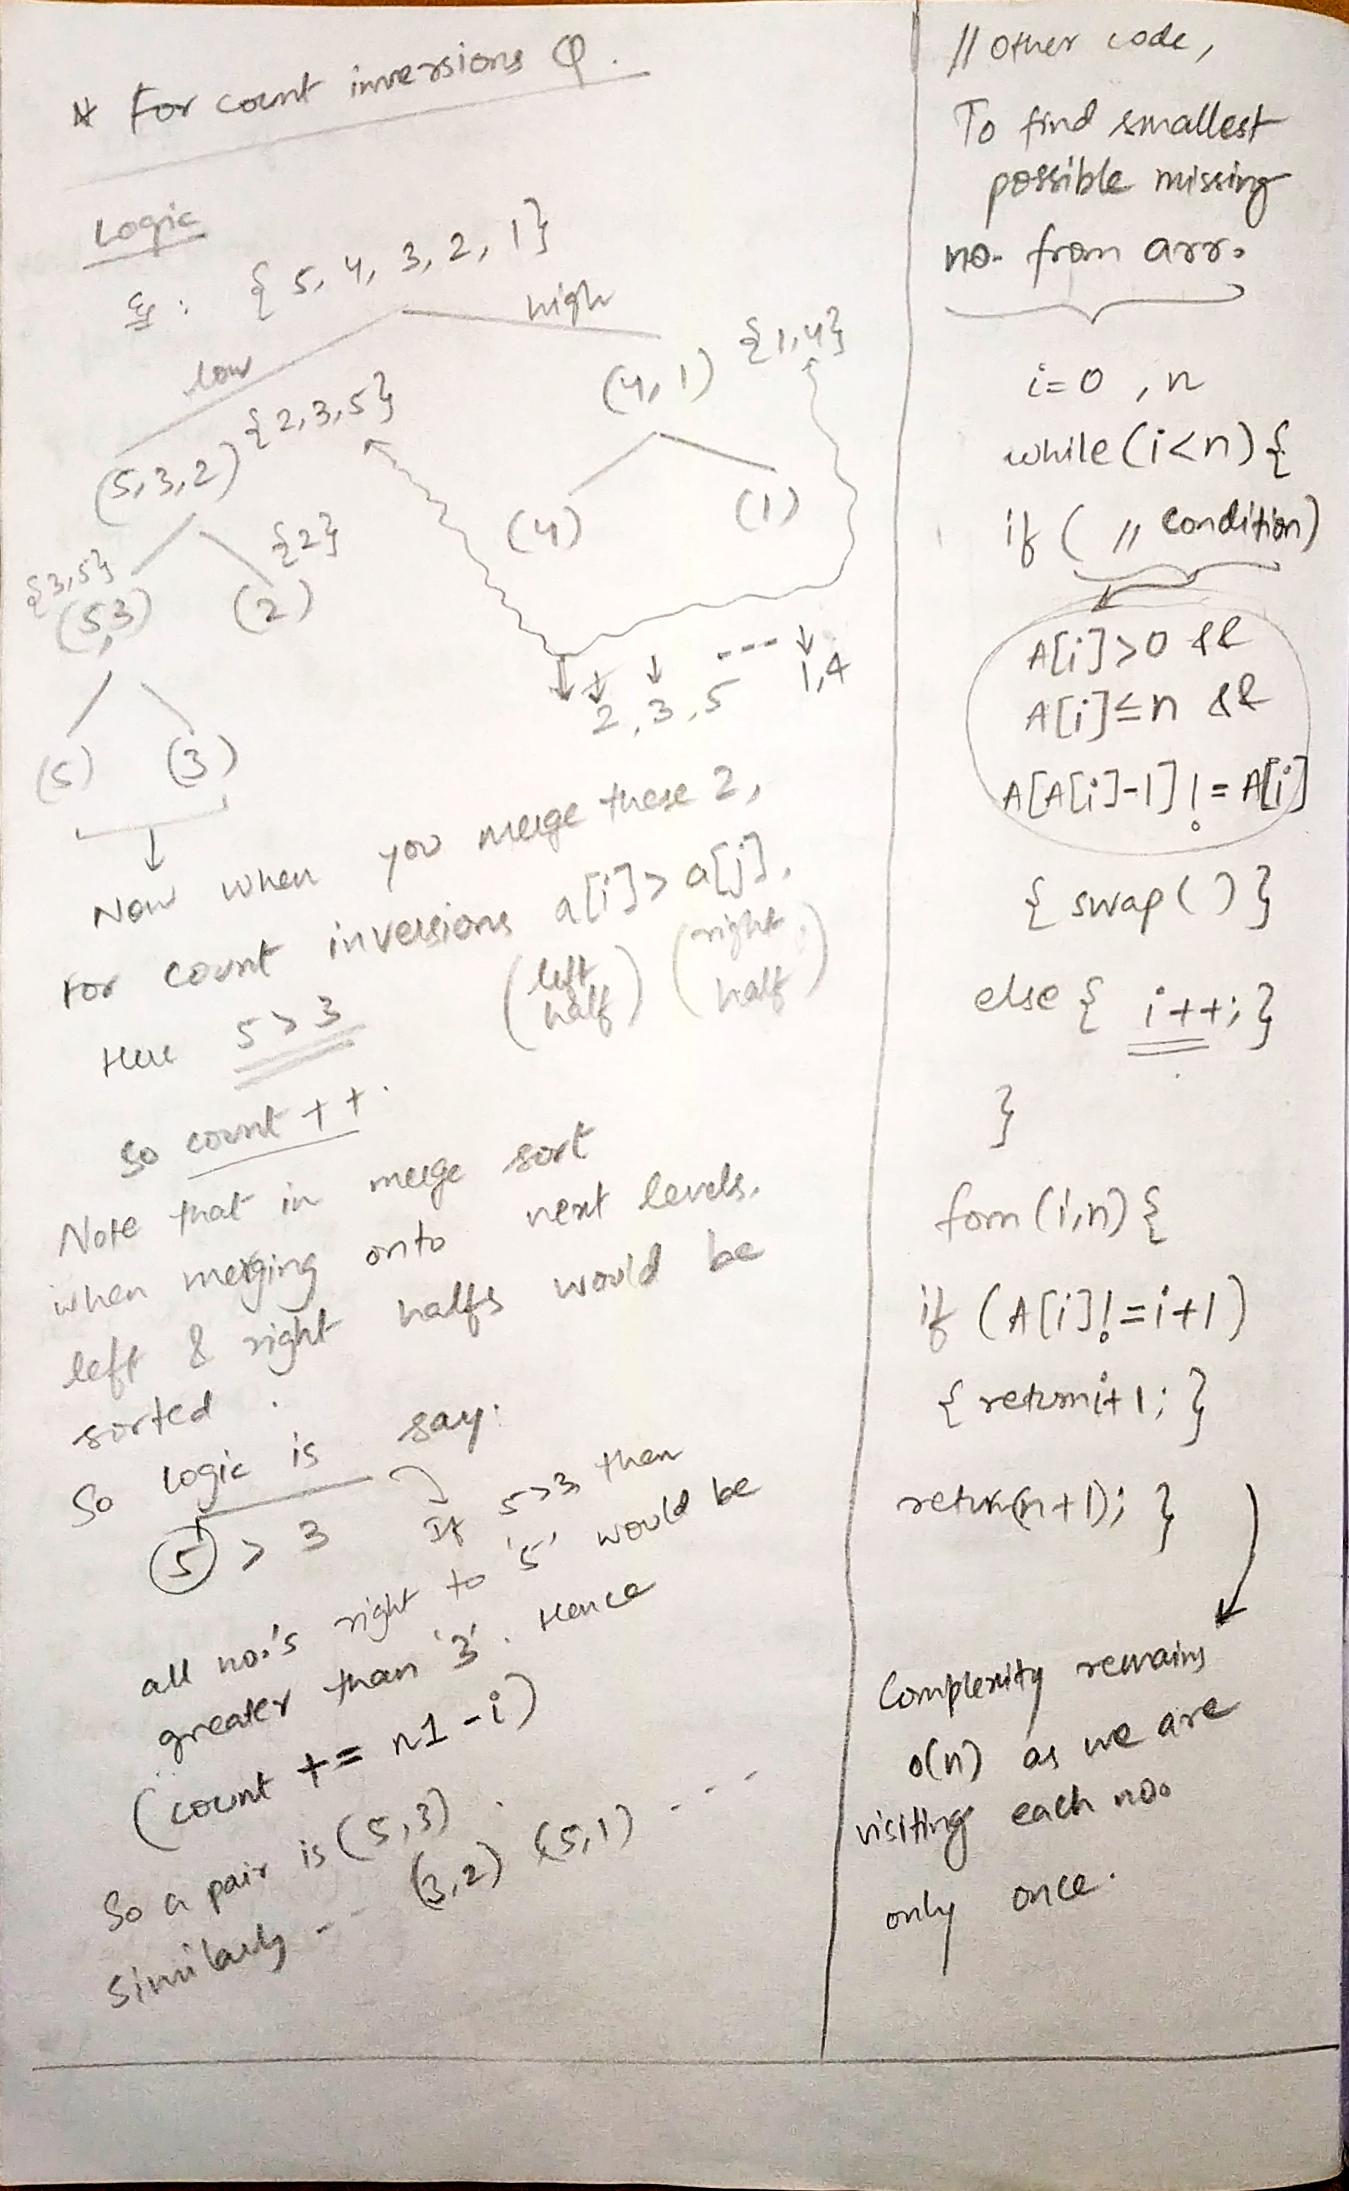 * For count inversions Q.
Logic
Eg: { 5, 4, 3, 2, 1}
low
high
(5,3,2) {2,3,5}
(4,1) {1,4}
{3,5}
(5,3)
{2}
(2)
(4)
(1)
(5)
(3)
2,3,5 ---- 1,4
Now when you merge these 2,
For count inversions a[i]> a[j].
(left half) (right half)
Here 5>3
So count ++.
Note that in merge sort
when merging onto next levels.
left & right halfs would be
sorted.
So logic is say:
5 > 3 If 5>3, then
all no.'s right to '5' would be
greater than '3'. Hence
(count += n1-i)
So a pair is (5,3).
Similarly -- (3,2) (5,1) ---
// Other code,
To find smallest
possible missing
no. from arr.
i=0 , n
while(i<n){
if ( // condition)
A[i]>0 &&
A[i]≤n &&
A[A[i]-1] != A[i]
{ swap( ) }
else { i++; }
}
forn (i,n) {
if (A[i]!=i+1)
{ return i+1; }
return(n+1); }
Complexity remains
o(n) as we are
visiting each no.
only once.